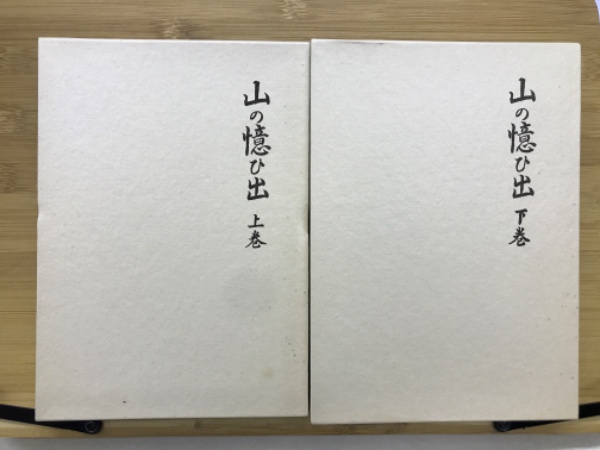 山の憶ひ出 上巻
山の憶ひ出 下巻